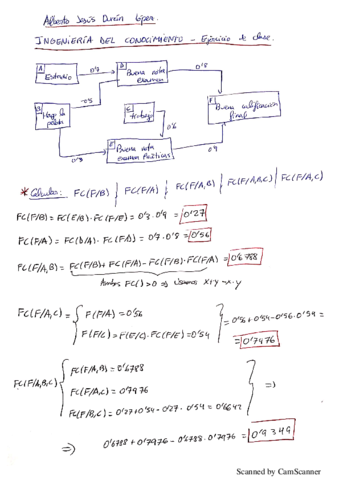 Alberto Jesús Durán López
INGENIERÍA DEL CONOCIMIENTO - Ejercicio de clase.
A
Estudio
0'7
D
Buena nota
examen
0'8
B
Hago la
pelota
-0'5
C
trabajo
0'6
F
Buena calificación
final
0'3
E
Buena nota
examen prácticas
0'9
* Cálculos: FC(F/B) | FC(F/A) | FC(F/A,B) | FC(F/A,B,C) | FC(F/A,C)
FC(F/B) = FC(E/B)·FC(F/E) = 0'3·0'9 = 0'27
FC(F/A) = FC(D/A)·FC(F/D) = 0'7·0'8 = 0'56
FC(F/A,B) = FC(F/B)+FC(F/A)-FC(F/B)·FC(F/A) = 0'6788
Ambos FC( )>0 ⇒ usamos x+y-x·y
FC(F/A,C) = { F(F/A) = 0'56
F(F/C) = F(E/C)·FC(F/E) = 0'54 } = 0'56+0'54-0'56·0'54 =
= 0'7976
FC(F/A,B,C) { FC(F/A,B) = 0'6788
FC(F/A,C) = 0'7976
FC(F/B,C) = 0'27+0'54-0'27·0'54 = 0'6642 } ⇒
⇒ 0'6788 + 0'7976 - 0'6788·0'7976 = 0'9349
Scanned by CamScanner